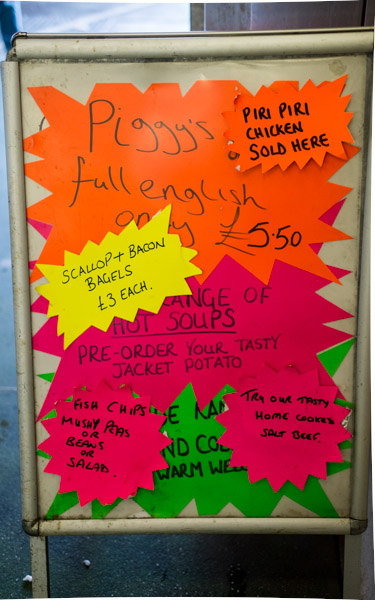 Piggy's
full english
only £5.50
PIRI PIRI
CHICKEN
SOLD HERE
SCALLOP + BACON
BAGELS
£3 EACH.
RANGE OF
HOT SOUPS
PRE-ORDER YOUR TASTY
JACKET POTATO
FISH CHIPS
MUSHY PEAS
OR
BEANS
OR
SALAD.
TRY OUR TASTY
HOME COOKED
SALT BEEF.
WARM